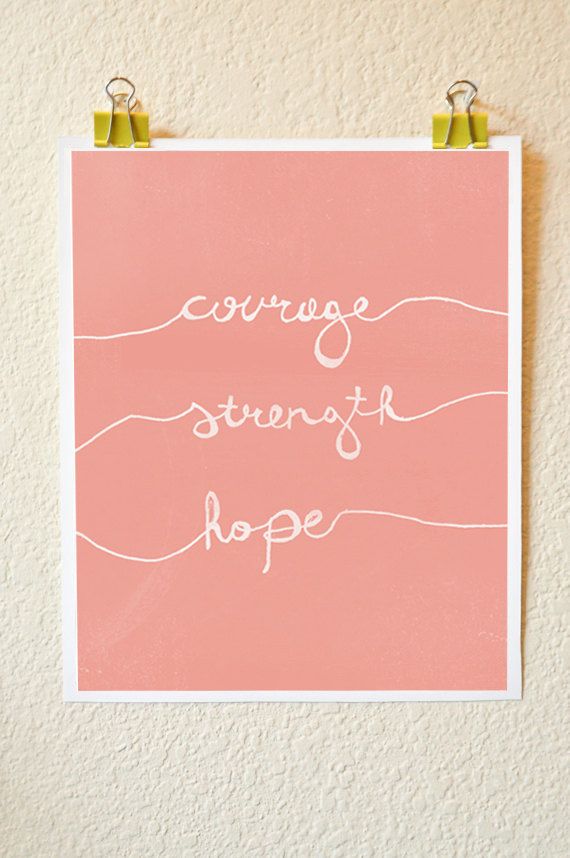 courage
strength
hope